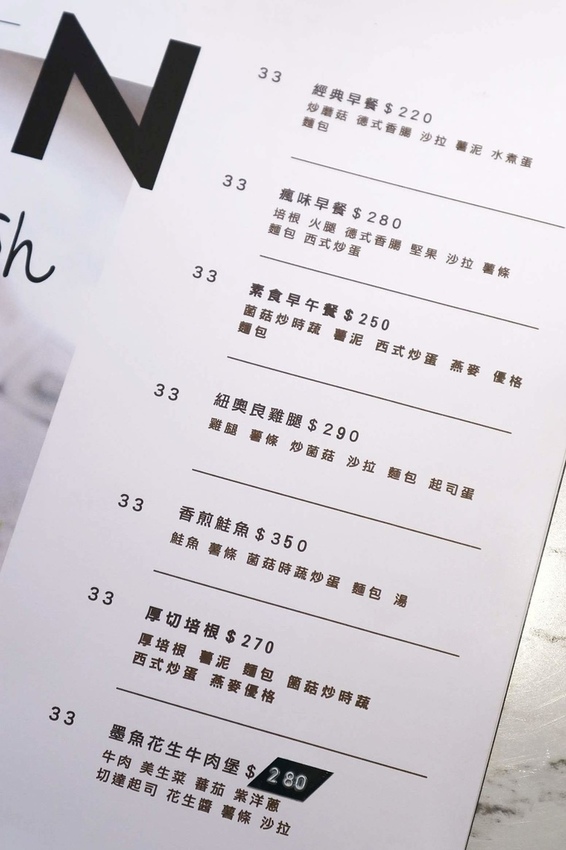 N
33
經典早餐 $220
炒蘑菇 德式香腸 沙拉 薯泥 水煮蛋
麵包
33
瘋味早餐 $280
培根 火腿 德式香腸 堅果 沙拉 薯條
麵包 西式炒蛋
33
素食早午餐 $250
菌菇炒時蔬 薯泥 西式炒蛋 燕麥 優格
麵包
33
紐奧良雞腿 $290
雞腿 薯條 炒菌菇 沙拉 麵包 起司蛋
33
香煎鮭魚 $350
鮭魚 薯條 菌菇時蔬炒蛋 麵包 湯
33
厚切培根 $270
厚培根 薯泥 麵包 菌菇炒時蔬
西式炒蛋 燕麥優格
33
墨魚花生牛肉堡 $280
牛肉 美生菜 蕃茄 紫洋蔥
切達起司 花生醬 薯條 沙拉